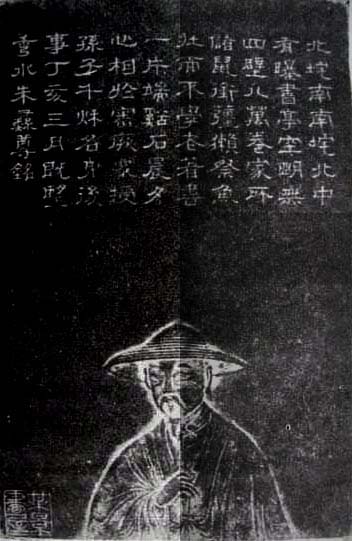 北垞南南垞北中
有曝書亭空明無
四壁八萬卷家所
儲鼠銜薑獺祭魚
壯而不學老著書
一片端谿石晨夕
心相於審厥象授
孫子千秋名身後
事丁亥三月既望
秀水朱彝尊銘